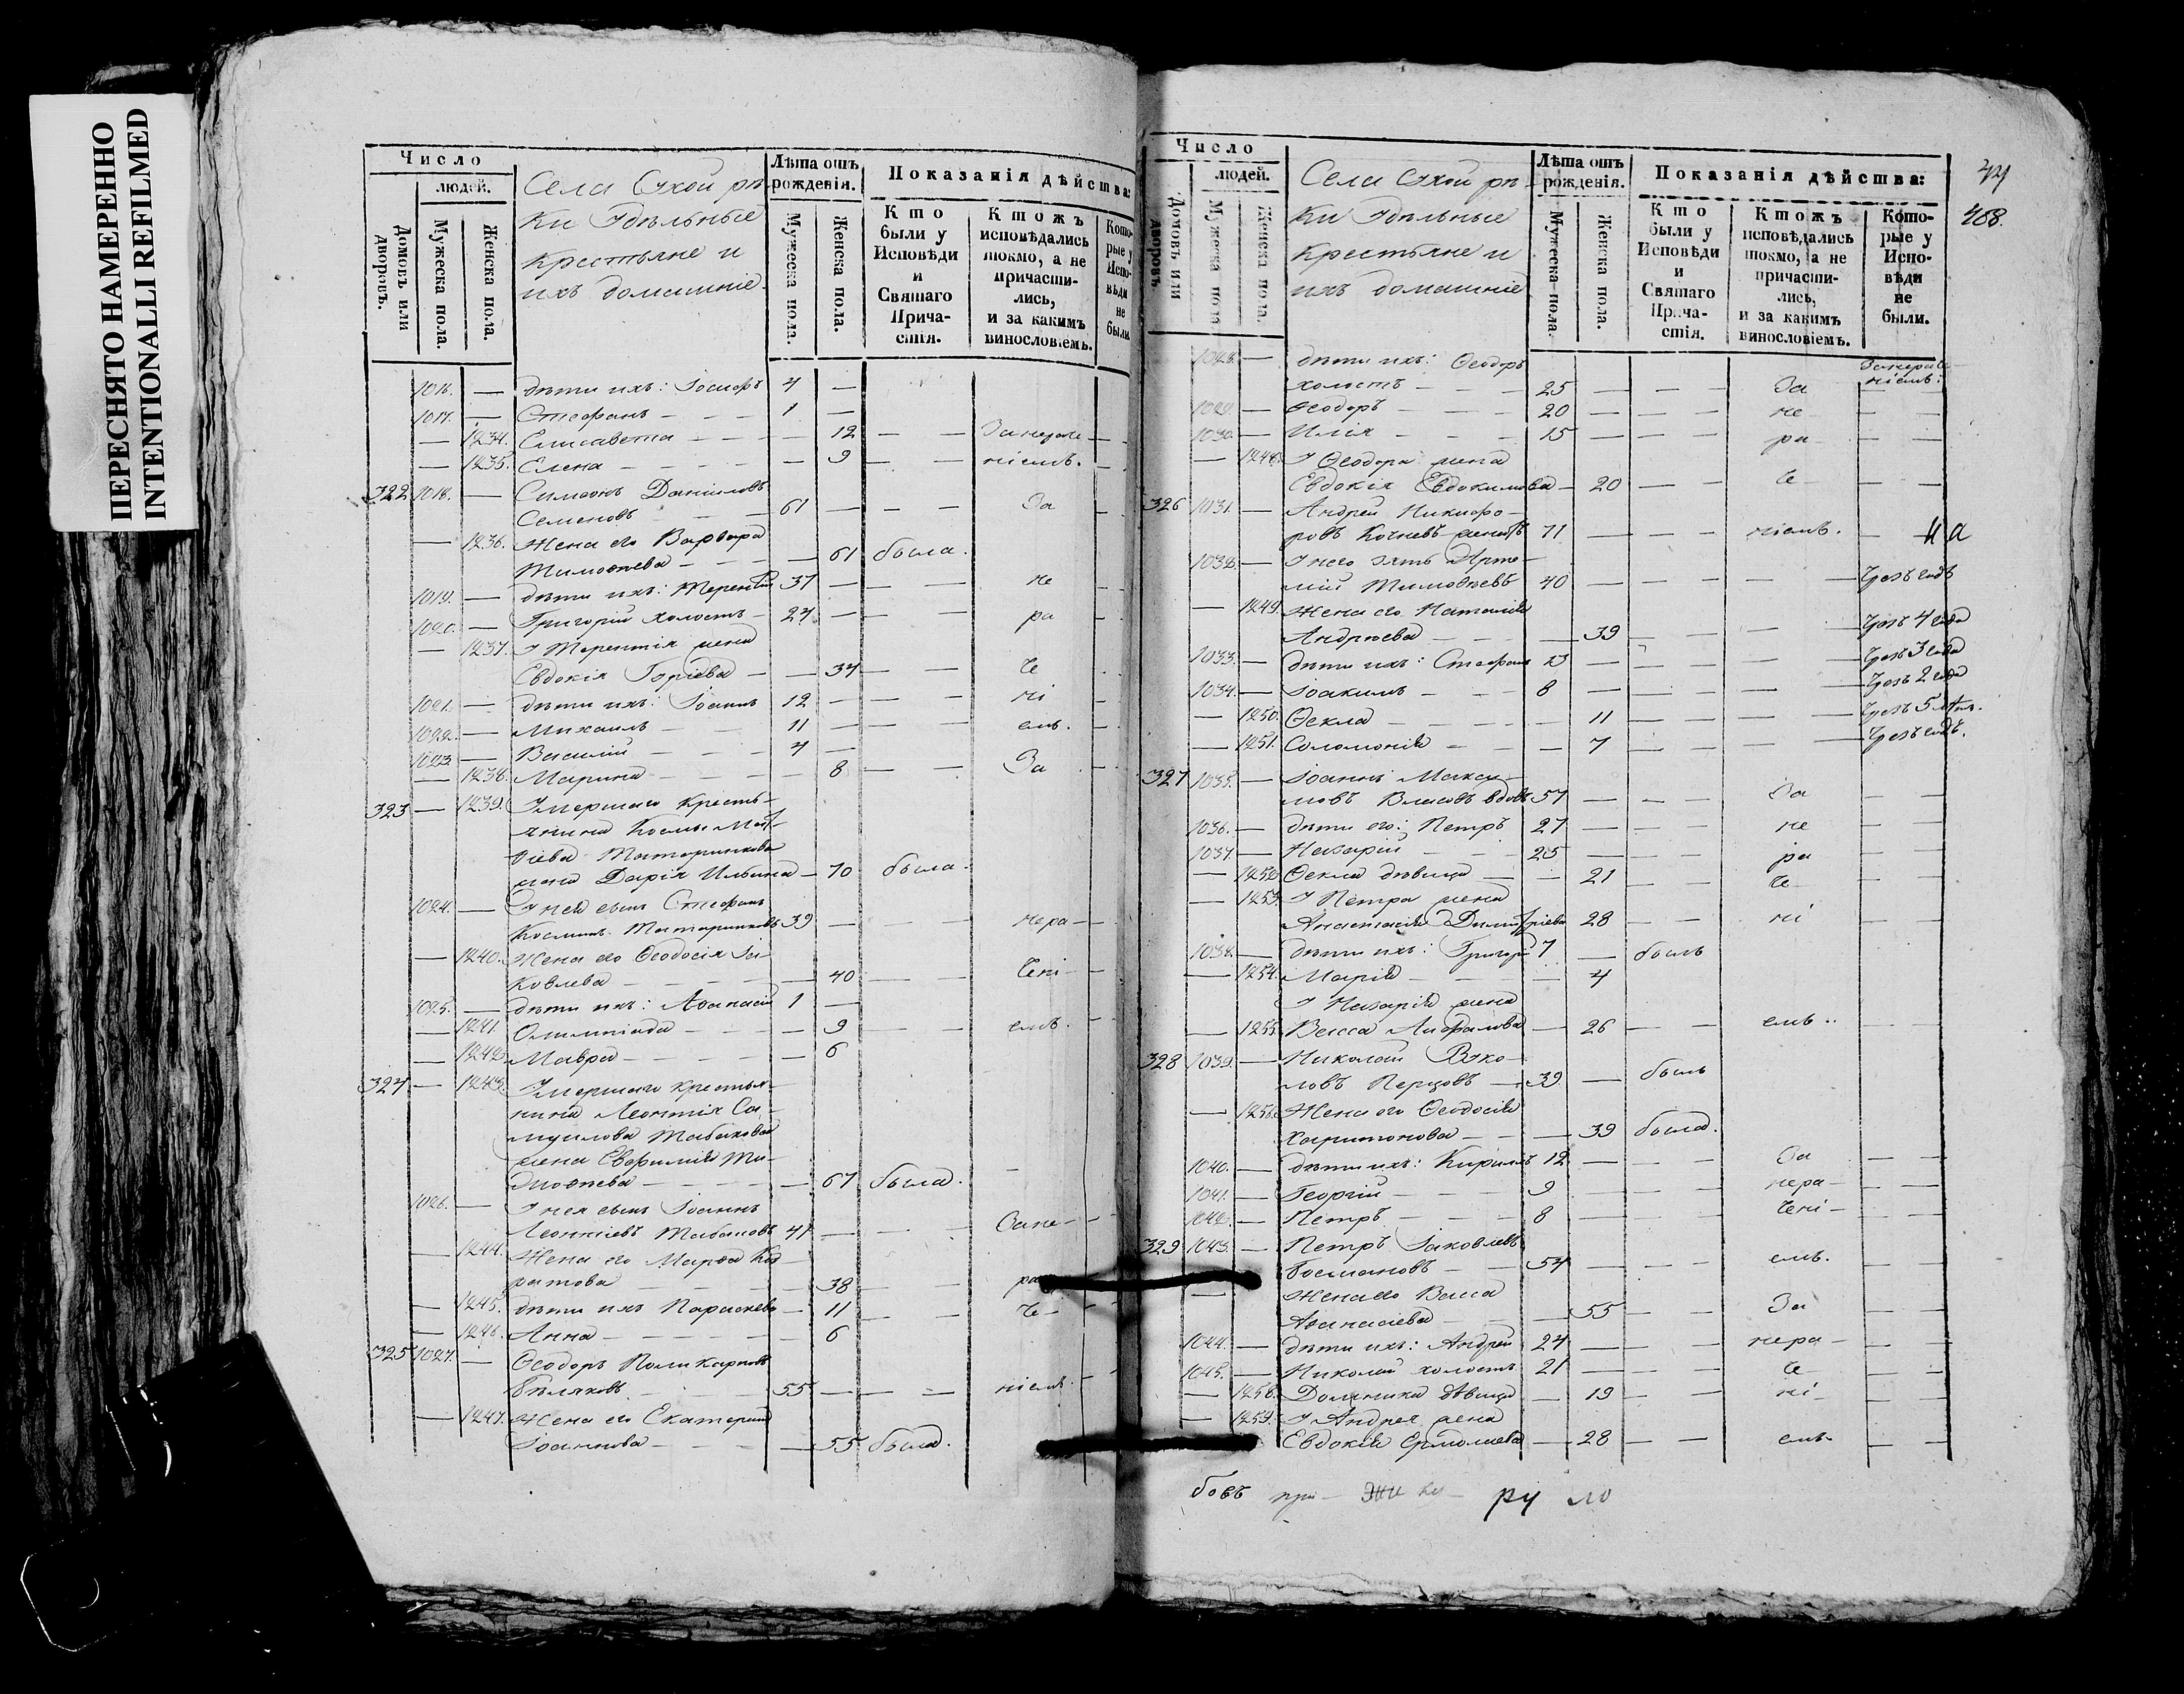 ПЕРЕСНЯТО НАМЕРЕННО
INTENTIONALLI REFILMED
Число
людей.
Домовъ или дворовъ.
Мужеска пола.
Женска пола.
Села Сухой рѣ-
ки Удѣльные
крестьяне и
ихъ домашніе
Лѣта отъ рожденія.
Мужеска пола.
Женска пола.
Показанія дѣйства:
Кто были у Исповѣди и Святаго Причастія.
Ктожъ исповѣдались токмо, а не причастились, и за какимъ винословіемъ.
Которые у Исповѣди не были.
1016. — дѣти ихъ: 4 —
1017. — Стефанъ 1 —
— 1234. Елисавета — 12 — — Занераче
— 1235. Елена — 9 — — ніемъ.
322 1018. — Симеонъ Даніиловъ
Семеновъ 61 — — — За
— 1236. Жена его Варвара
Тимоѳеева — 61 была.
1019. — дѣти ихъ: Терентій 37 — — не
1020. — Григорій холостъ 27 — — ра
— 1237. У Терентія жена
Евдокія — 37 — — че
1021. — дѣти ихъ: Іоаннъ 12 — — ні
1022. — Михаилъ 11 — — емъ.
1023. — Василій 4 —
— 1238. Марина — 8 — — За
323 — 1239. Умершаго кресть-
янина Космы Мат-
ѳіева Татаринкова
жена Дарія Ильина — 70 была.
1024. — У ней сынъ Стефанъ
Косминъ Татаринковъ 39 — — нера-
— 1240. Жена его Ѳеодосія Іа-
ковлева — 40 — — чені-
1025. — дѣти ихъ: Аѳанасій 1 —
— 1241. Олимпіада — 9 — — емъ.
— 1242. Мавра — 6
324 — 1243. Умершаго крестья-
нина Леонтія Са-
муилова Табакова
жена Евфимія Ти-
моѳеева — 67 была.
1026. — У нея сынъ Іоаннъ
Леонтіевъ Табаковъ 41 — — Зане-
— 1244. Жена его Марѳа Код-
ратова — 38 — — ра
— 1245. дѣти ихъ Параскева — 11 — — че-
— 1246. Анна — 6
325 1027. — Ѳеодоръ Поликарповъ
Бѣляковъ 55 — — — ніемъ.
— 1247. Жена его Екатерина
Іоаннова — 55 была.
Число
людей.
Домовъ или дворовъ
Мужеска пола
Женска пола.
Села Сухой рѣ-
ки Удѣльные
крестьяне и
ихъ домашніе
Лѣта отъ рожденія.
Мужеска пола.
Женска пола.
Показанія дѣйства:
Кто были у Исповѣди и Святаго Причастія.
Ктожъ исповѣдались токмо, а не причастились, и за какимъ винословіемъ.
Которые у Исповѣди не были.
44
408.
1028. — дѣти ихъ: Ѳеодоръ
холостъ 25 — — За
1029. — Ѳеодоръ 20 — — не
1030. — Илія 15 — — ра
— 1248. У Ѳеодора жена
Евдокія Евдокимова — 20 — — че
326 1031. — Андрей Никифо-
ровъ 71 — — ніемъ. — на
1032. — У него зять Арте-
мій Тимоѳеевъ 40 — — чрезъ годъ
— 1249. Жена его Наталія
Андрѣева — 39 — — чрезъ 4 года
1033. — дѣти ихъ: Стефанъ 13 — — чрезъ 3 года
1034. — Іоакимъ 8 — — чрезъ 2 года
— 1250. Ѳекла — 11 — — чрезъ 5 лѣтъ.
— 1251. Соломонія — 7 — — чрезъ годъ.
327 1035. — Іоаннъ Макси-
мовъ Власовъ вдовъ 57 — — За
1036. — дѣти его: Петръ 27 — — не
1037. — Назарій 25 — — ра
— 1252. Ѳекла дѣвица — 21 — — че
— 1253. У Петра жена
Анастасія Димитріева 28 — — ні
1038. — дѣти ихъ: Григорій 7 — былъ
— 1254. Марія — 4
У Назарія жена
— 1255. Васса — 26 — — емъ.
328 1039. — Николай Яко-
вловъ Перцовъ — 39 — былъ
— 1256. Жена его Ѳеодосія
Харитонова — 39 была.
1040. — дѣти ихъ: Кириллъ 12 — — За
1041. — Георгій 9 — — нера-
1042. — Петръ 8 — — чені-
329 1043. — Петръ Іаковлевъ
54 — — емъ.
— Жена его Васса
Аѳанасіева — 55 — — За
1044. — дѣти ихъ: Андрей 24 — — нера-
1045. — Николай холостъ 21 — — че
— 1258. Домника дѣвица — 19 — — ні-
— 1259. У Андрея жена
Евдокія Ермолаева — 28 — — емъ.
ру ло